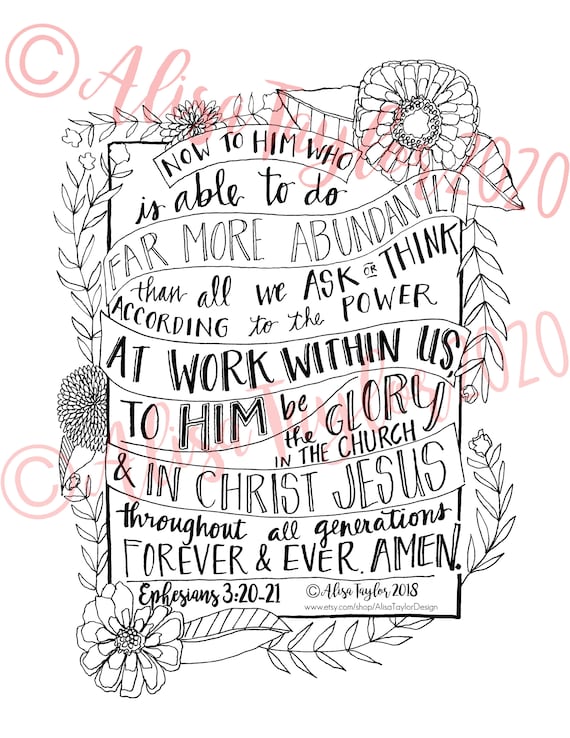 © Alisa Taylor 2020
NOW TO HIM WHO
is able to do
FAR MORE ABUNDANTLY
than all we ASK OR THINK
ACCORDING to the POWER
AT WORK WITHIN US,
TO HIM be
the GLORY
IN THE CHURCH
& IN CHRIST JESUS
throughout all generations
FOREVER & EVER. AMEN.
Ephesians 3:20-21
© Alisa Taylor 2018
www.etsy.com/shop/AlisaTaylorDesign
© Alisa Taylor 2020